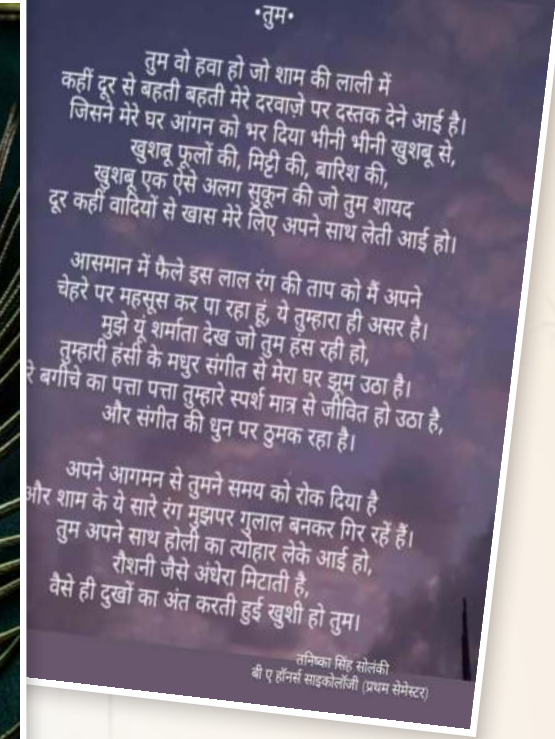 •तुम•
तुम वो हवा हो जो शाम की लाली में
कहीं दूर से बहती बहती मेरे दरवाज़े पर दस्तक देने आई है।
जिसने मेरे घर आंगन को भर दिया भीनी भीनी खुशबू से,
खुशबू फूलों की, मिट्टी की, बारिश की,
खुशबू एक ऐसे अलग सुकून की जो तुम शायद
दूर कहीं वादियों से खास मेरे लिए अपने साथ लेती आई हो।
आसमान में फैले इस लाल रंग की ताप को मैं अपने
चेहरे पर महसूस कर पा रहा हूं, ये तुम्हारा ही असर है।
मुझे यूं शर्माता देख जो तुम हंस रही हो,
तुम्हारी हंसी के मधुर संगीत से मेरा घर झूम उठा है।
रे बगीचे का पत्ता पत्ता तुम्हारे स्पर्श मात्र से जीवित हो उठा है,
और संगीत की धुन पर ठुमक रहा है।
अपने आगमन से तुमने समय को रोक दिया है
और शाम के ये सारे रंग मुझपर गुलाल बनकर गिर रहें हैं।
तुम अपने साथ होली का त्योहार लेके आई हो,
रौशनी जैसे अंधेरा मिटाती है,
वैसे ही दुखों का अंत करती हुई खुशी हो तुम।
तनिष्का सिंह सोलंकी
बी ए हॉनर्स साइकोलॉजी (प्रथम सेमेस्टर)